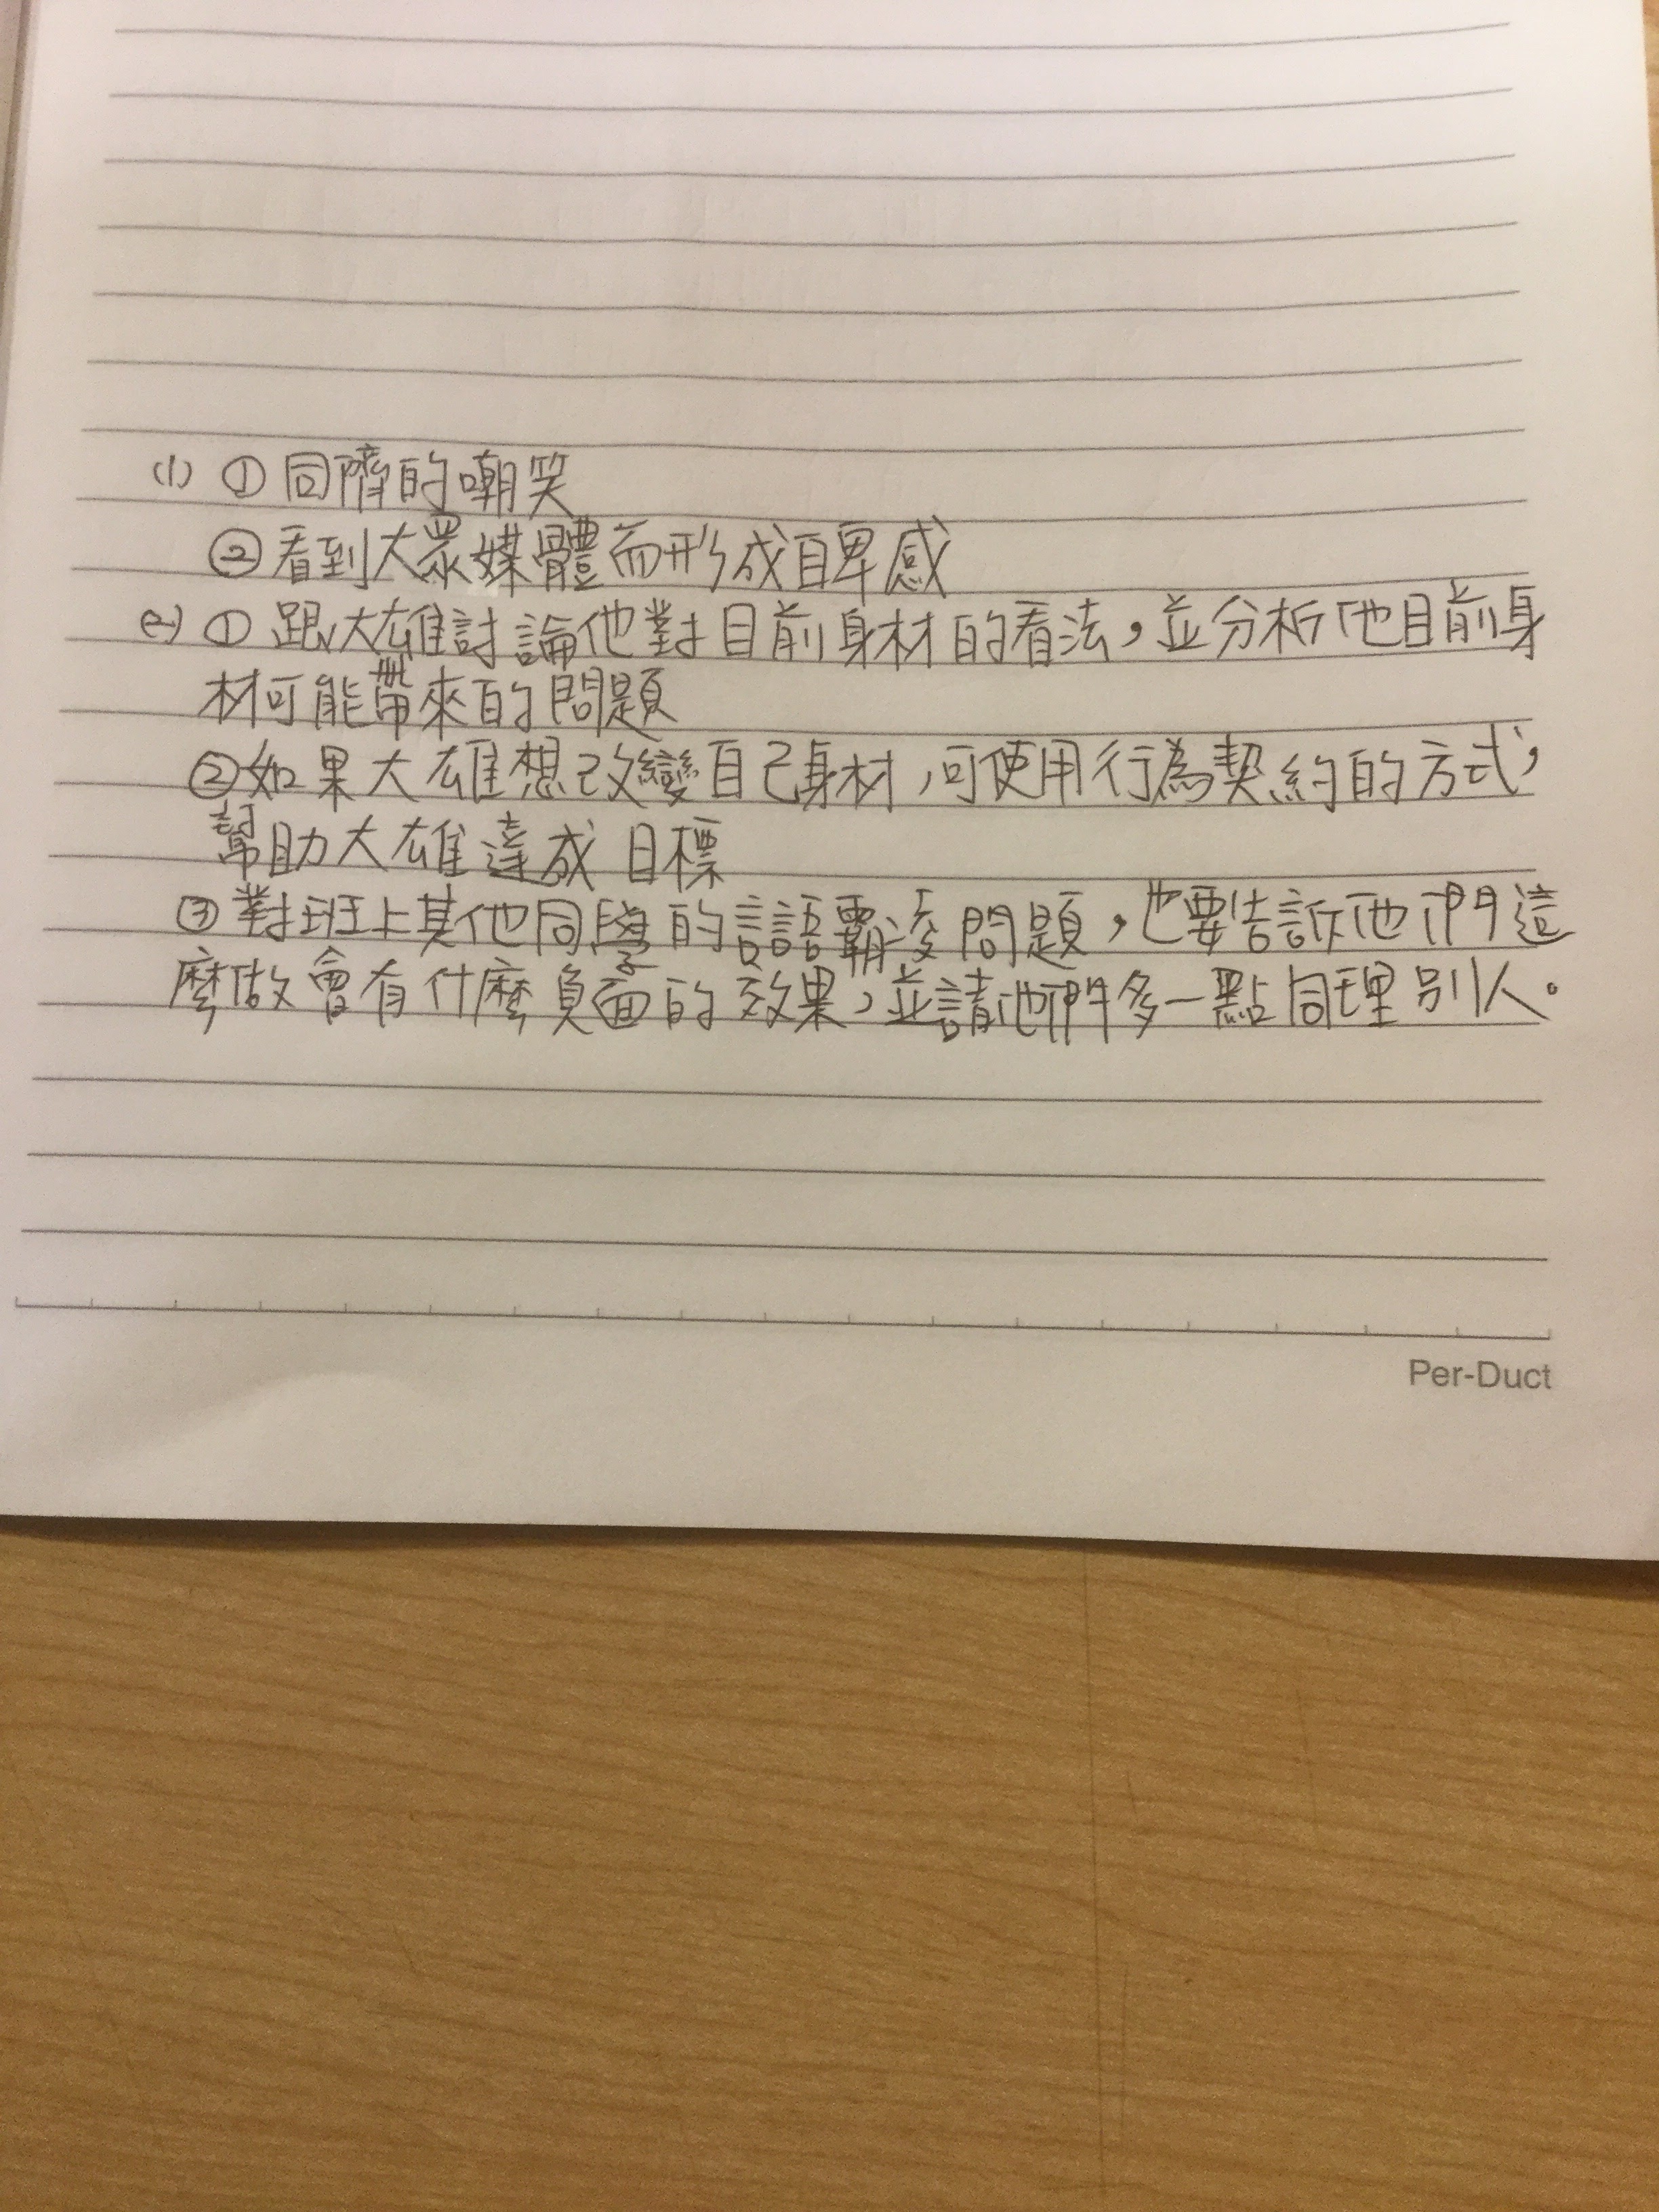 (1) ① 同儕的嘲笑
② 看到大眾媒體而形成自卑感
(2) ① 跟大雄討論他對目前身材的看法，並分析他目前身
材可能帶來的問題
② 如果大雄想改變自己身材，可使用行為契約的方式，
幫助大雄達成目標
③ 對班上其他同學的言語霸凌問題，也要告訴他們這
麼做會有什麼負面的效果，並請他們多一點同理別人。
Per-Duct